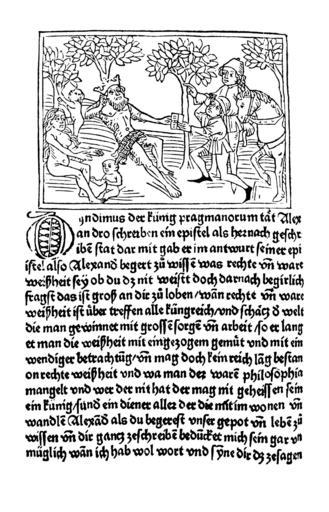 Dyndimus der künig pragmanorum tät Alex
andro schreiben ein epistel als hernach geschr
ibē stat dar mit gab er im antwurt seiner epi
istel also Alexanđ begert zů wissē was rechte vñ ware
weißheit sey ob du dz nit weist doch darnach begirlich
fragst das ist groß an dir zů loben/ wañ rechte vñ ware
weißheit ist über treffen alle küngreich/vnd schätz đ welt
die man gewinnet mit grosse sorgē vñ arbeit/so er lang
et man die weißheit mit eingezogem gemüt vnd mit ein
wendiger betrachtūg/vñ mag doch kein reich läg bestan
on rechte weißheit vnd wa man der warē philosophia
mangelt vnd wer der nit hat der mag nit geheissen sein
ein kunig/sund ein diener aller der die mit im wonen vñ
wandlē Alexanđ als du begerest vnser gepot vñ lebē zů
wissen vñ dir gancz zeschreibē beduncket mich sein gar vn
müglich wän ich hab wol wort vnd syñe dir dz zesagen